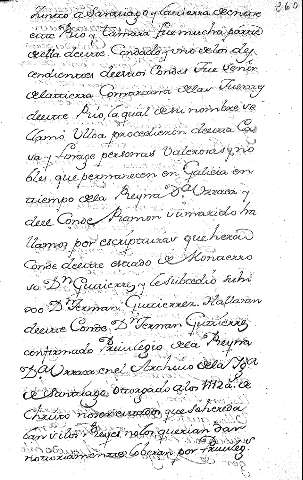 Junto a Santiago y la tierra de entre
este Rio y Tamara fue mucha parte
della deeste Condado y uno de los des
cendientes deestos Condes fue señor
de la tierra Comarcana de las
deeste Rio, la qual de su nombre se
llamó Ulloa procedieron deesta Ca
sa y linage personas valerosas y no
bles que permanecen en Galicia en
tiempo de la Reyna D.ª Urraca y
de el Conde Ramon su marido ha
llamos por escripturas que hera
Conde deeste estado de Monterro
so D.n Gutierre y le subcedio su hi
jo D.n Fernan Gutierrez. Hallaran
deeste Conde D.n Fernan Gutierrez
confirmado Privilegio de la Reyna
D.ª Urraca en el Archivo de la Yg.ª
de Santiago otorgado a los 1112 a.s de
Christo no que se hereda
ban si los Reyes no los querian dar
notoriamente lo beran por Privileg.s